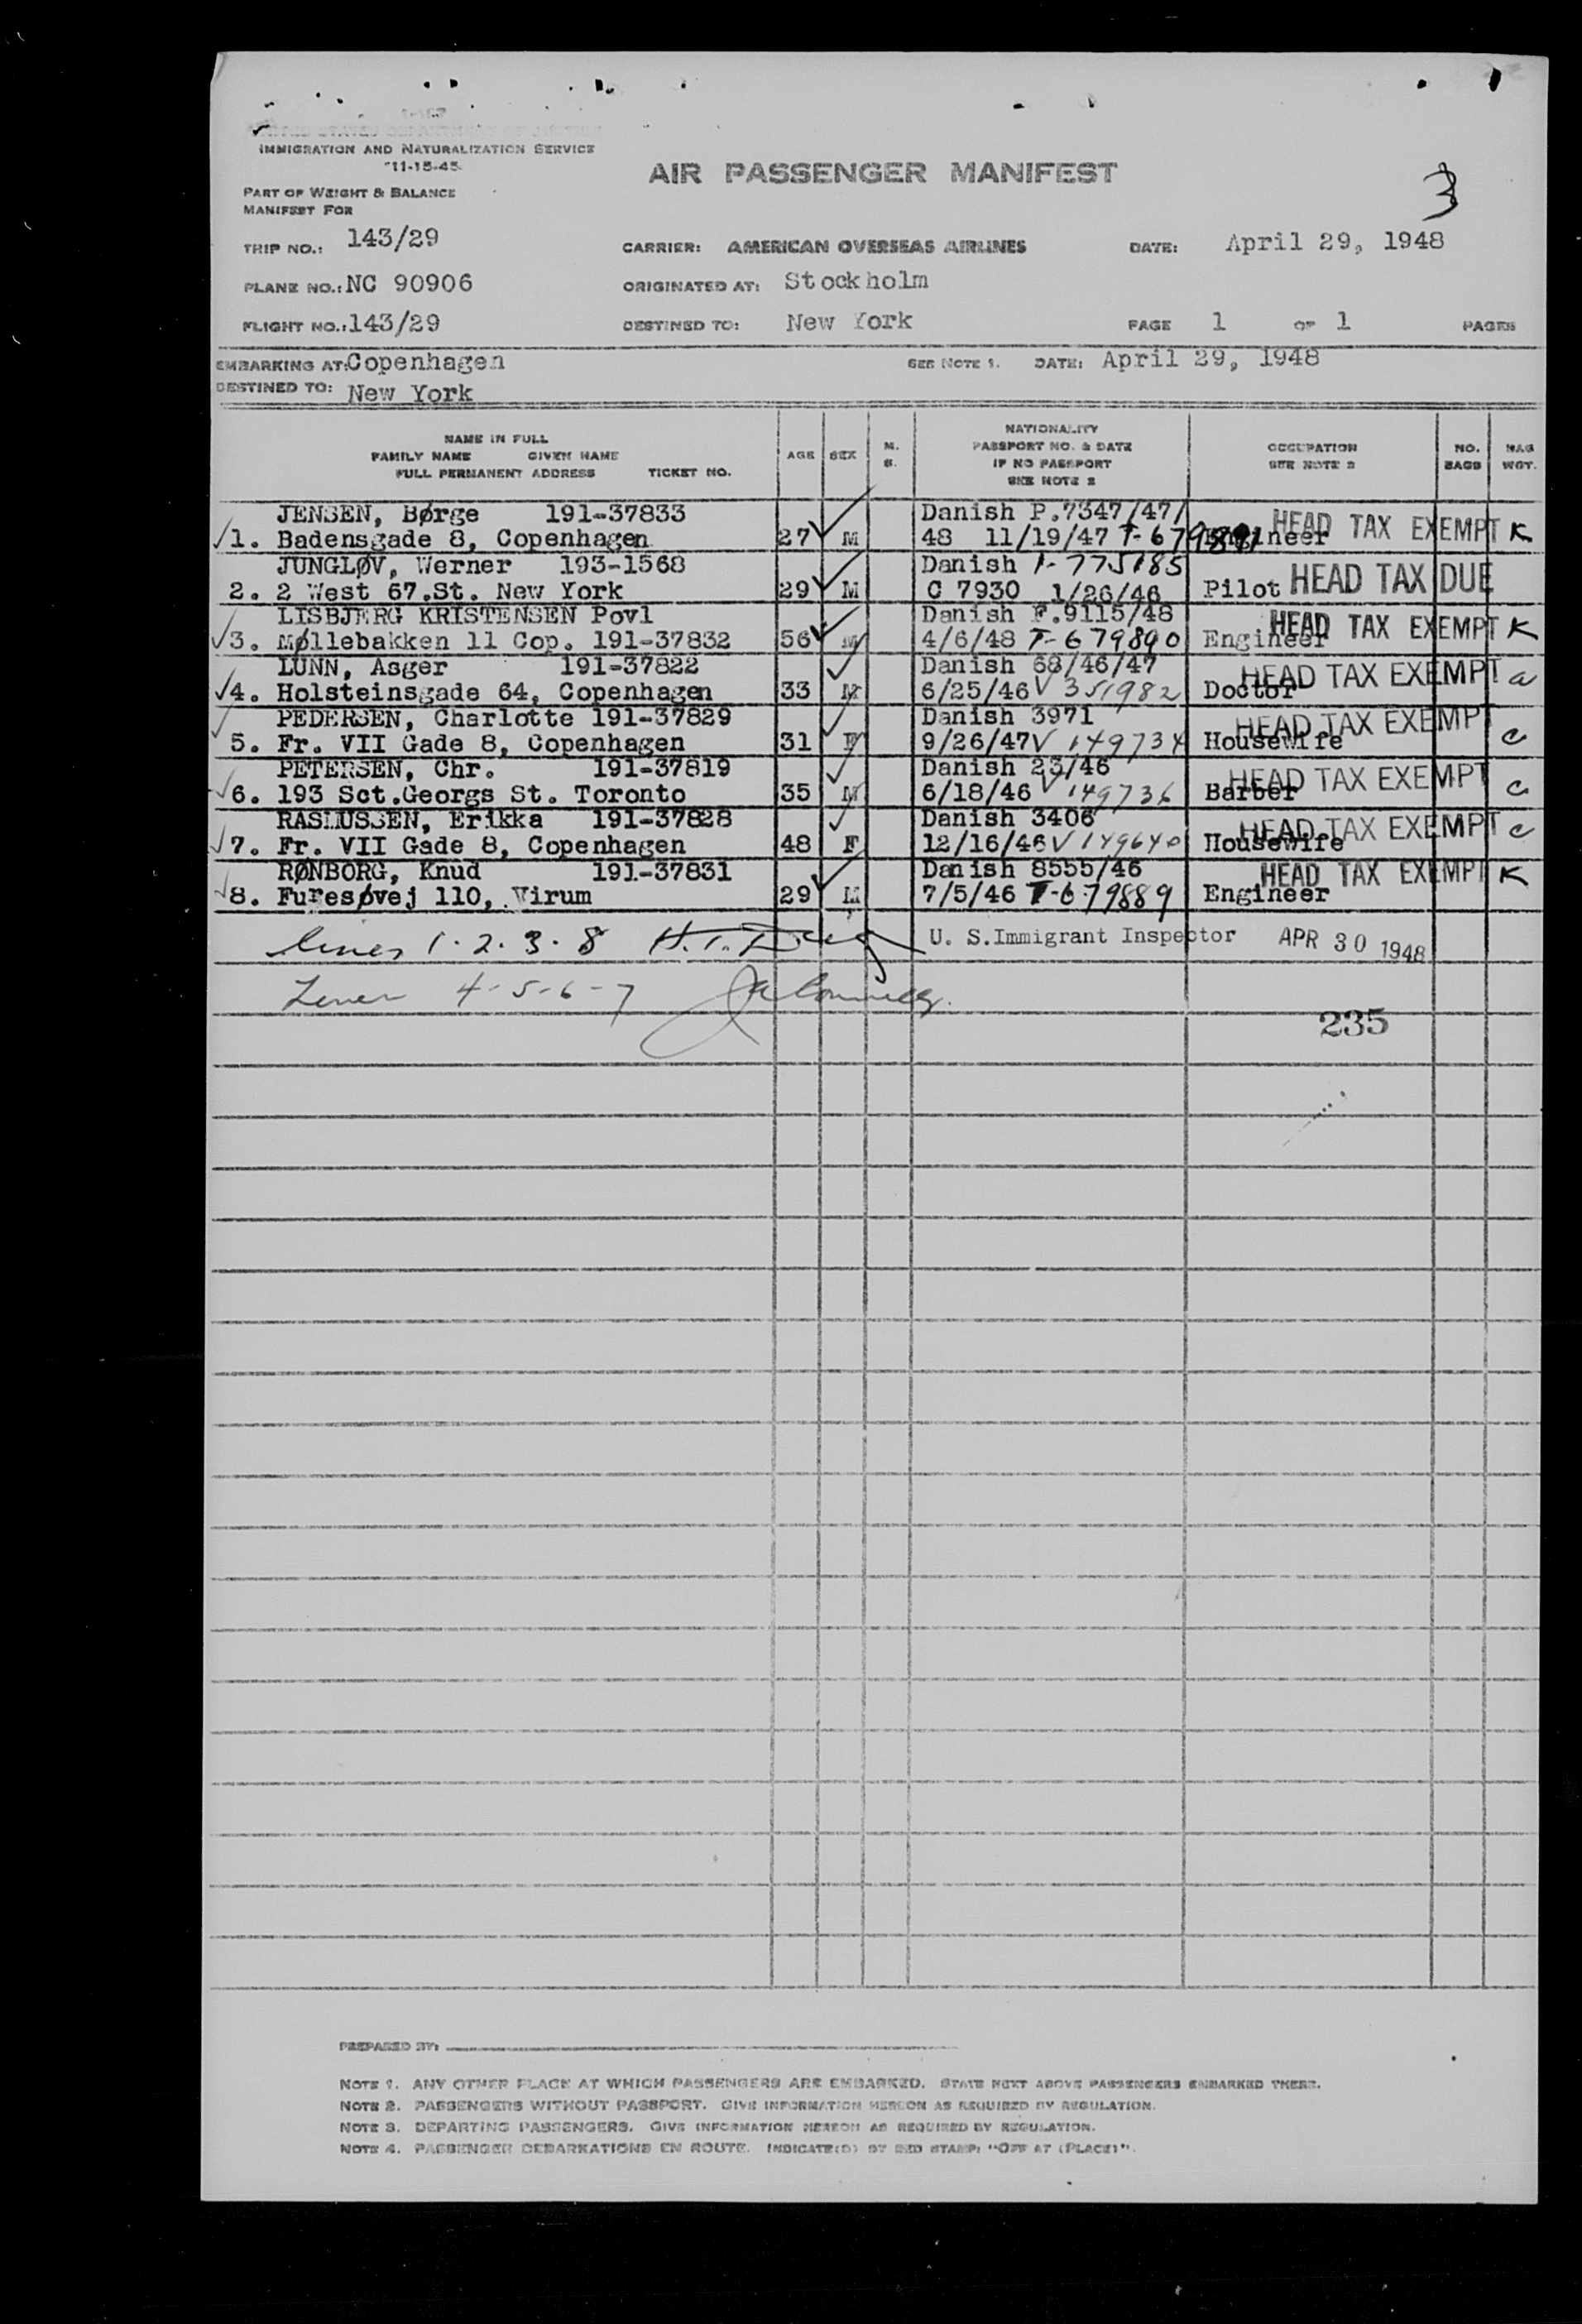 IMMIGRATION AND NATURALIZATION SERVICE
11-15-45
AIR PASSENGER MANIFEST
3
PART OF WEIGHT & BALANCE
MANIFEST FOR
TRIP NO.: 143/29 CARRIER: AMERICAN OVERSEAS AIRLINES DATE: April 29, 1948
PLANE NO.: NC 90906 ORIGINATED AT: Stockholm
FLIGHT NO.: 143/29 DESTINED TO: New York PAGE 1 OF 1 PAGES
EMBARKING AT: Copenhagen SEE NOTE 1. DATE: April 29, 1948
DESTINED TO: New York
NAME IN FULL
FAMILY NAME GIVEN NAME
FULL PERMANENT ADDRESS TICKET NO.
AGE SEX M. S.
NATIONALITY
PASSPORT NO. & DATE
IF NO PASSPORT
SEE NOTE 2
OCCUPATION
SEE NOTE 2
NO. BAGS
BAG WGT.
JENSEN, Børge 191-37833 Danish P.7347/47/ HEAD TAX EXEMPT K
1. Badensgade 8, Copenhagen 27 M 48 11/19/47 T-679891 Engineer
JUNGLØV, Werner 193-1568 Danish 1-775185
2. 2 West 67.St. New York 29 M C 7930 1/26/46 Pilot HEAD TAX DUE
LISBJERG KRISTENSEN Povl Danish F.9115/48 HEAD TAX EXEMPT K
3. Møllebakken 11 Cop. 191-37832 56 M 4/6/48 T-679890 Engineer
LUNN, Asger 191-37822 Danish 68/46/47 HEAD TAX EXEMPT a
4. Holsteinsgade 64, Copenhagen 33 M 6/25/46 V 351982 Doctor
PEDERSEN, Charlotte 191-37829 Danish 3971 HEAD TAX EXEMPT c
5. Fr. VII Gade 8, Copenhagen 31 F 9/26/47 V 149734 Housewife
PETERSEN, Chr. 191-37819 Danish 23/46 HEAD TAX EXEMPT c
6. 193 Sct.Georgs St. Toronto 35 M 6/18/46 V 149736 Barber
RASMUSSEN, Erikka 191-37828 Danish 3406 HEAD TAX EXEMPT c
7. Fr. VII Gade 8, Copenhagen 48 F 12/16/46 V 149640 Housewife
RØNBORG, Knud 191-37831 Danish 8555/46 HEAD TAX EXEMPT K
8. Furesøvej 110, Virum 29 M 7/5/46 T-679889 Engineer
Lines 1. 2. 3. 8 U. S.Immigrant Inspector APR 30 1948
Lines 4-5-6-7
235
PREPARED BY:
NOTE 1. ANY OTHER PLACE AT WHICH PASSENGERS ARE EMBARKED. STATE NEXT ABOVE PASSENGERS EMBARKED THERE.
NOTE 2. PASSENGERS WITHOUT PASSPORT. GIVE INFORMATION HEREON AS REQUIRED BY REGULATION.
NOTE 3. DEPARTING PASSENGERS. GIVE INFORMATION HEREON AS REQUIRED BY REGULATION.
NOTE 4. PASSENGER DEBARKATIONS EN ROUTE. INDICATE(D) BY RED STAMP: "OFF AT (PLACE)".